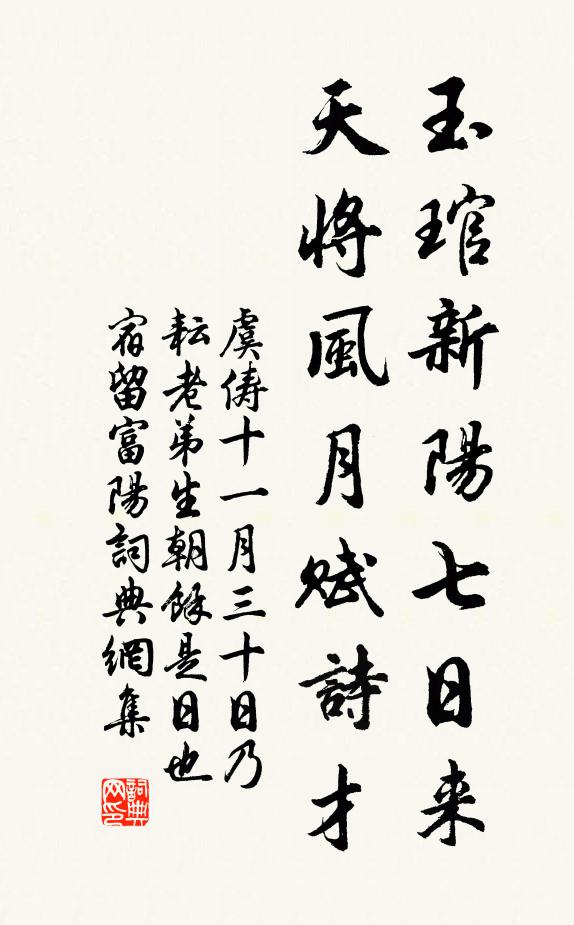 玉琯新陽七日来
天將風月賦詩才
虞儔十一月三十日乃
耘老弟生朝餘是日也
宿留富陽詞典網集
詞典网印